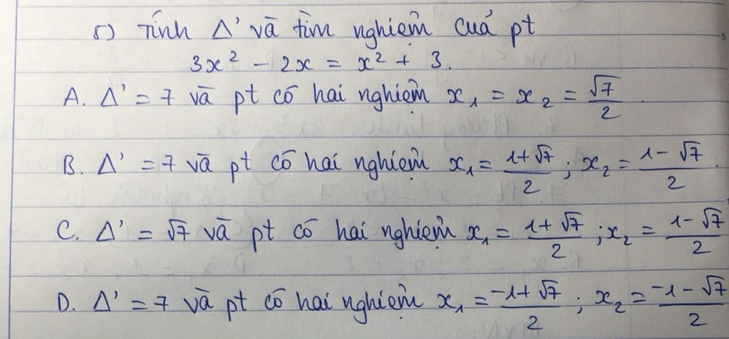 5) Tính Δ' và tìm nghiệm của pt
3x² - 2x = x² + 3.
A. Δ' = 7 và pt có hai nghiệm x₁ = x₂ = √7/2.
B. Δ' = 7 và pt có hai nghiệm x₁ = (1+√7)/2; x₂ = (1-√7)/2.
C. Δ' = √7 và pt có hai nghiệm x₁ = (1+√7)/2; x₂ = (1-√7)/2
D. Δ' = 7 và pt có hai nghiệm x₁ = (-1+√7)/2; x₂ = (-1-√7)/2